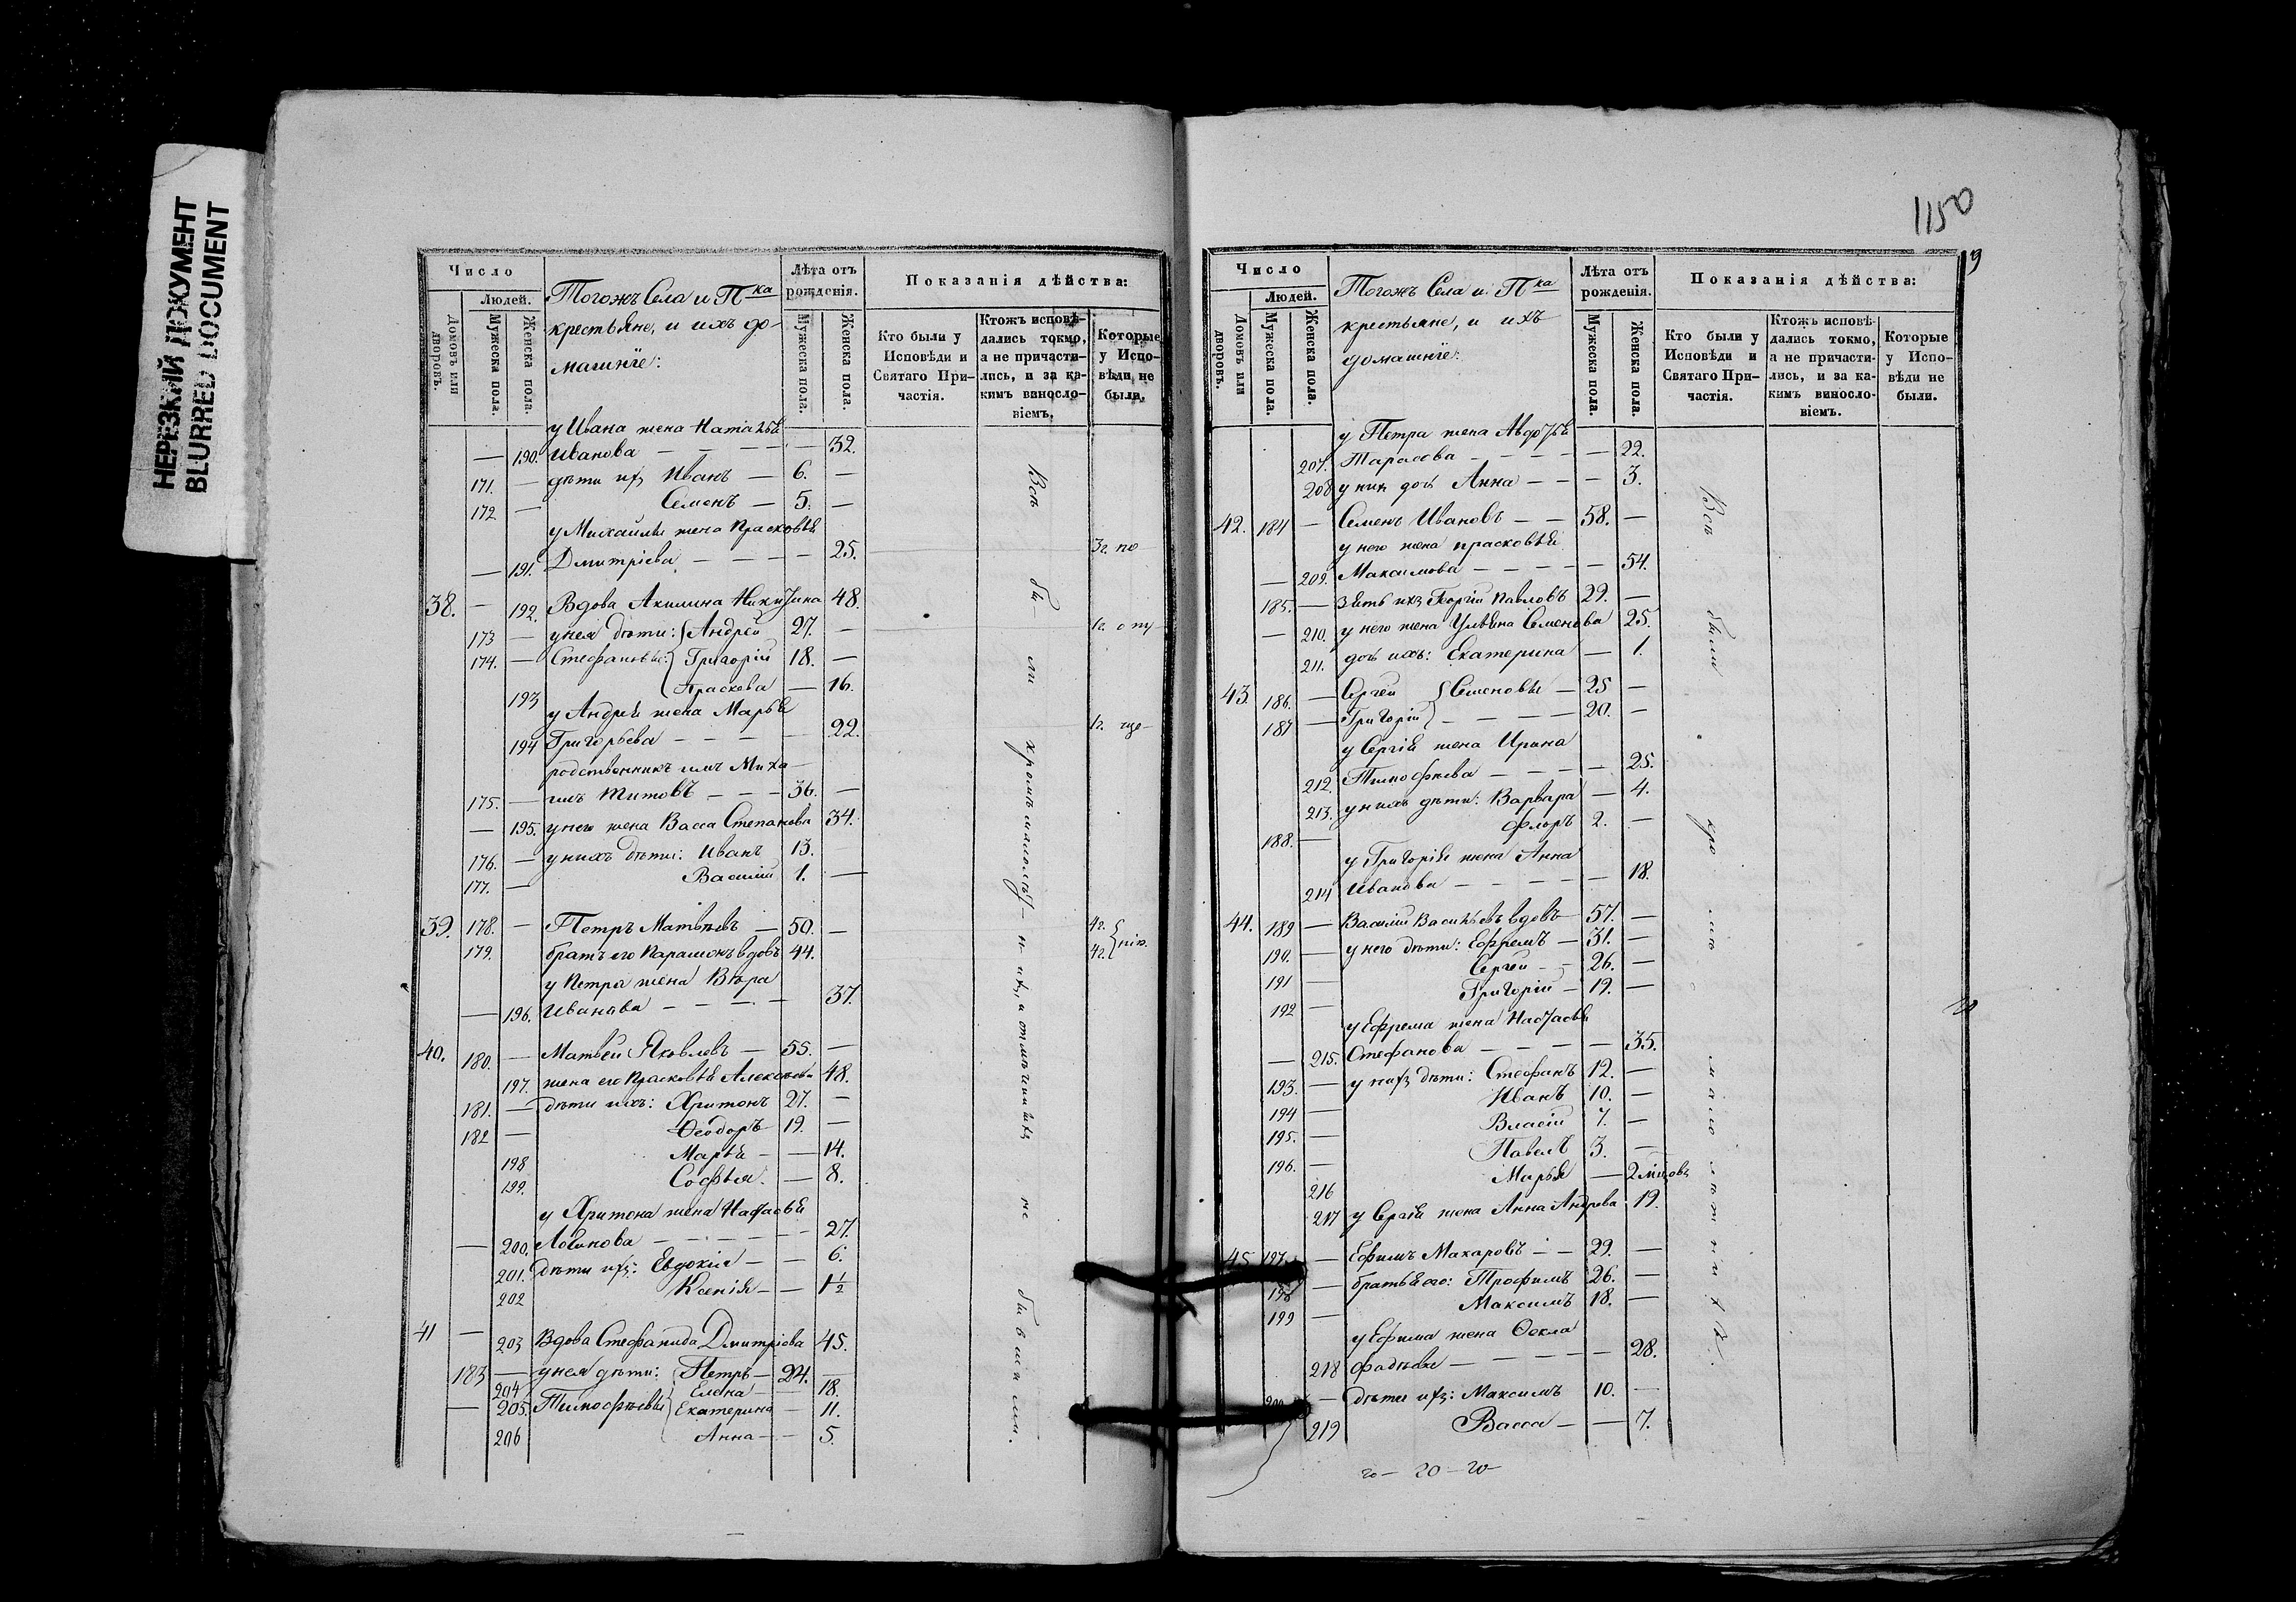 НЕРЕЗКИЙ ДОКУМЕНТ
BLURRED DOCUMENT
Число
Людей.
Домовъ или дворовъ.
Мужеска пола.
Женска пола.
Тогожъ Села и Пка
крестьяне, и ихъ до-
машнiе:
Лѣта отъ рожденiя.
Мужеска пола.
Женска пола.
Показанiя дѣйства:
Кто были у Исповѣди и Святаго При-частiя.
Ктожъ исповѣ-дались токмо, а не причасти-лись, и за ка-кимъ винослo-вiемъ.
Которые у Испо-вѣди не были.
у Ивана жена Наталья
— 190. Иванова — — — — 32.
171. — дѣти ихъ Иванъ — 6. —
172 — Семенъ — 5. —
у Михаила жена Прасковья
— 191. Дмитрiева — — — — 25. 3г. по
38. — 192. Вдова Акилина Никитина 48.
173 — у нея дѣти: Андрей 27. — 1г. опу
174. — Стефановы: Григорiй 18. —
193 Праскева — 16.
у Андрея жена Марья
194 Григорьева — — — — 22. 1г.
родственникъ имъ Миха-
175. — илъ Титовъ — — — 36. —
— 195. у него жена Васса Степанова 34.
176. — у нихъ дѣти: Иванъ 13. —
177. — Василiй 1. —
39. 178. — Петръ Матвѣевъ — 50. — 4г.
179. братъ его Парамонъ вдовъ 44. 4г.
у Петра жена Вѣра
— 196. Иванова — — — — 37.
40. 180. — Матвей Яковлевъ — 55. —
197. жена его Прасковья Алексѣева 48.
181. — дѣти ихъ: Харитонъ 27. —
182 — Ѳеодоръ 19. —
198 Марья — — 14.
199. Софья. — 8.
у Харитона жена Настасья
— 200. Логинова — — — — 27.
201. дѣти ихъ: Евдокiя — — 6.
202 Ксенiя — — 1½
41 — 203 Вдова Стефанида Дмитрiева 45.
183 — у нея дѣти: Петръ — 24. —
204 Елена — — 18.
— 205. Тимофѣевы Екатерина — 11.
206 Анна — — 5.
Всѣ бы-ли кромѣ малолѣт-н-ихъ, а отмѣченныхъ не бывшими.
1150
Число
Людей.
Домовъ или дворовъ.
Мужеска пола.
Женска пола.
Тогожъ Села и Пка
крестьяне, и ихъ
домашнiе:
Лѣта отъ рожденiя.
Мужеска пола.
Женска пола.
Показанiя дѣйства:
Кто были у Исповѣди и Святаго При-частiя.
Ктожъ исповѣ-дались токмо, а не причасти-лись, и за ка-кимъ винослo-вiемъ.
Которые у Испо-вѣди не были.
у Петра жена Авдотья
207. Тарасова — — — — 22.
208 у них дочь Анна — — — 3.
42. 184 — Семенъ Ивановъ — — 58. —
у него жена Прасковья
— 209. Максимова — — — — 54.
185. — зять ихъ Георгiй Павловъ 29. —
— 210. у него жена Ульяна Семенова 25.
211. дочь ихъ: Екатерина — 1.
43. 186. — Сергей Семеновы — 25 —
187 — Григорiй — — — — 20. —
у Сергiя жена Ирина
212. Тимофѣева — — — — 25.
213. у нихъ дѣти: Варвара — 4.
188. — Флоръ 2. —
у Григорiя жена Анна
214 Иванова — — — — 18.
44. 189 — Василiй Васильевъ вдовъ — 57. —
190. — у него дѣти: Ефремъ — 31. —
191 — Сергей — — 26. —
192 — Григорiй — 19. —
у Ефрема жена Настасья
— 215. Стефанова — — — — 35.
193. — у нихъ дѣти: Стефанъ 12. —
194 — Иванъ 10. —
195. — Власiй 7. —
196. — Павелъ 3. —
216 Марья — 2 мцовъ
217 у Сергѣя жена Анна Андреева 19.
45 197. — Ефимъ Макаровъ — — 29. —
198 — братья его: Трофимъ 26. —
199 — Максимъ 18. —
у Ефима жена Ѳекла
218 Фадѣева — — — — 28.
200 — дѣти ихъ: Максимъ 10. —
219 Васса — — 7.
Всѣ были кро мѣ мало лѣтнихъ.
20 — 20 — 20 —